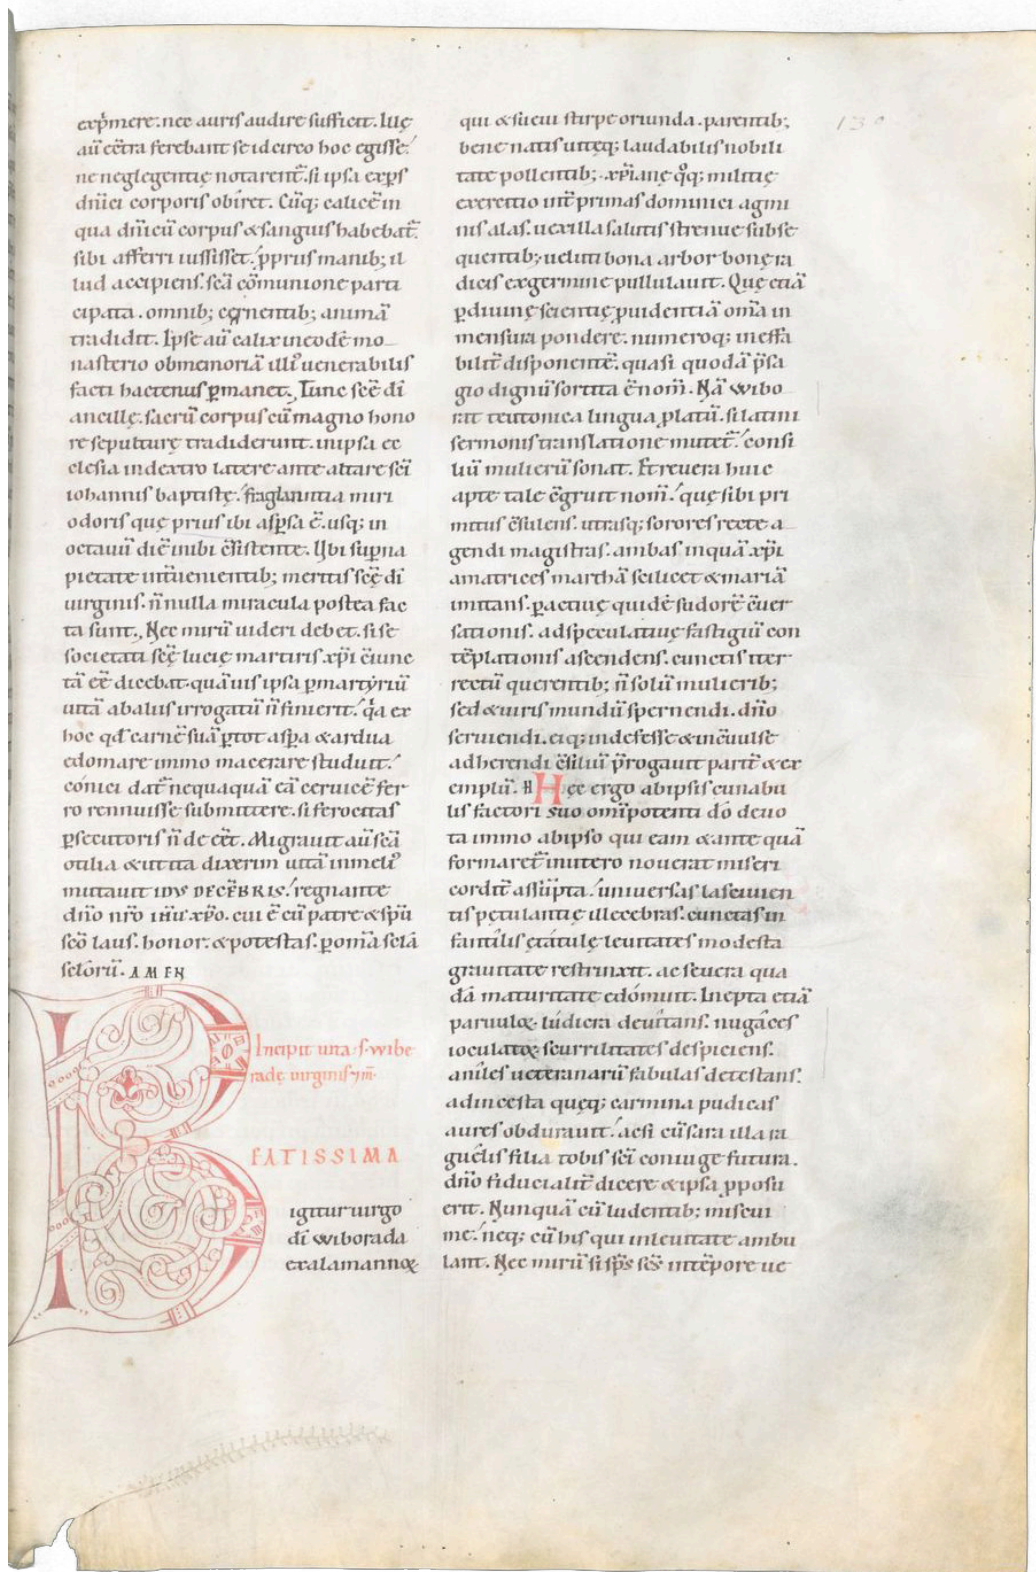 exp̄mere. nec auris audire sufficit. Illę
aū cēt̄ra ferebant se idcirco hoc egisse.
ne neglegentię notarent̄. si ipsa exp̱s
dn̄ici corporis obiret. Cūq; calicē in
qua dn̄icū corpus & sanguis habebat̄.
sibi afferri iussisset. ꝓpriis manib; il
lud accipiens. scā cōmunione parti
cipata. omnib; cernentib; animā
tradidit. Ipse aū calix in eodē mo
nasterio ob memoriā illi᷒ venerabilis
facti hactenus ꝑmanet. Tunc scę̄ dī
ancillę. sacrū corpus cū magno hono
re sepulturę tradiderunt. in ipsa ec
clesia in dextro latere ante altare scī
iohannis baptistę. fraglantia miri
odoris quę prius ibi asp̱sa ē. usq; in
octauū diē inibi c̄sistente. Ubi sup̱na
pietate int̄uenientib; meritis scę̄ dī
uirginis. n̄nulla miracula postea fac
ta sunt. Nec mirū uideri debet. si se
societati scę̄ lucię martiris xp̄i c̄iunc
tā eē dicebat. quāuis ipsa ꝑ martyriū
uitā ab aliis irrogatū n̄ finierit. q̄a ex
hoc qđ carnē suā ꝑ tot asp̱a & ardua
edomare immo macerare studuit.
cōnici dat̄ nequaquā eā ceruicē fer
ro rennuisse submittere. si ferocitas
ꝑsecutoris n̄ deeēt. Migrauit aū scā
otilia & ut ita dixerim uitā in meli᷒
mutauit IDVS DECEBRIS. regnante
dn̄o nr̄o ih̄u xp̄o. cui ē cū patre & sp̄u
scō laus. honor. & potestas. ꝑ om̄a sclā
sclōrū. AMEN
Incipit uita .s. wibe
radę uirginis & m̄.
BEATISSIMA
igitur uirgo
dī wiborada
ex alamannoꝝ
qui & sueui stirpe oriunda. parentib;
bene natis utiq; laudabilis nobili
tate pollentib; xp̄ianę qͦq; militię
exercitio int̄ primas dominici agmi
nis alas. uexilla salutis strenue subse
quentib; veluti bona arbor bonę ra
dicis ex germine pullulauit. Quę etiā
ꝑ diuinę scientię ꝓuidentiā om̄a in
mensura pondere. numeroq; ineffa
bilit̄ disponentē. quasi quodā p̄sa
gio dignū sortita ē nom̄. Nā wibo
rat teutonica lingua ꝓlatū. si latini
sermonis translatione mutet̄. consi
liū mulierū sonat. Et reuera huic
apte tale c̄gruit nom̄. quę sibi pri
mitus c̄sulens. utrasq; sorores recte a
gendi magistras. ambas inquā xp̄i
amatrices marthā scilicet & mariā
imitans. ꝑ actiuę quidē sudorē c̄uer
sationis. ad speculatiuę fastigiū con
tēplationis ascendens. cunctis iter
rectū querentib; n̄ solū mulierib;
sed & uiris mundū spernendi. dn̄o
seruiendi. eiq; indefesse & inc̄uulse
adherendi c̄siliū p̄rogauit parit̄ & ex
emplū. Hęc ergo ab ipsis cunabu
lis factori suo omīpotenti dō deuo
ta immo ab ipso qui eam & antequā
formaret̄ in utero nouerat miseri
cordit̄ assūpta. uniuersas lasciuien
tis petulantię illecebras. cunctas in
fantilis ętatulę leuitates modesta
grauitate restrinxit. ac seuera qua
dā maturitate edomuit. Inepta etiā
paruuloꝝ ludicra deuitans. nugaces
ioculatoꝝ scurrilitates despiciens.
aniles ueteranarū fabulas detestans.
ad incesta quęq; carmina pudicas
aures obdurauit. ac si cū sara illa ra
guelis filia tobis scī coniuge futura.
dn̄o fiducialit̄ dicere & ipsa ꝓposu
erit. Nunquā cū ludentib; miscui
me. neq; cū his qui in leuitate ambu
lant. Nec mirū si sp̄s scs̄ in tēpore ue